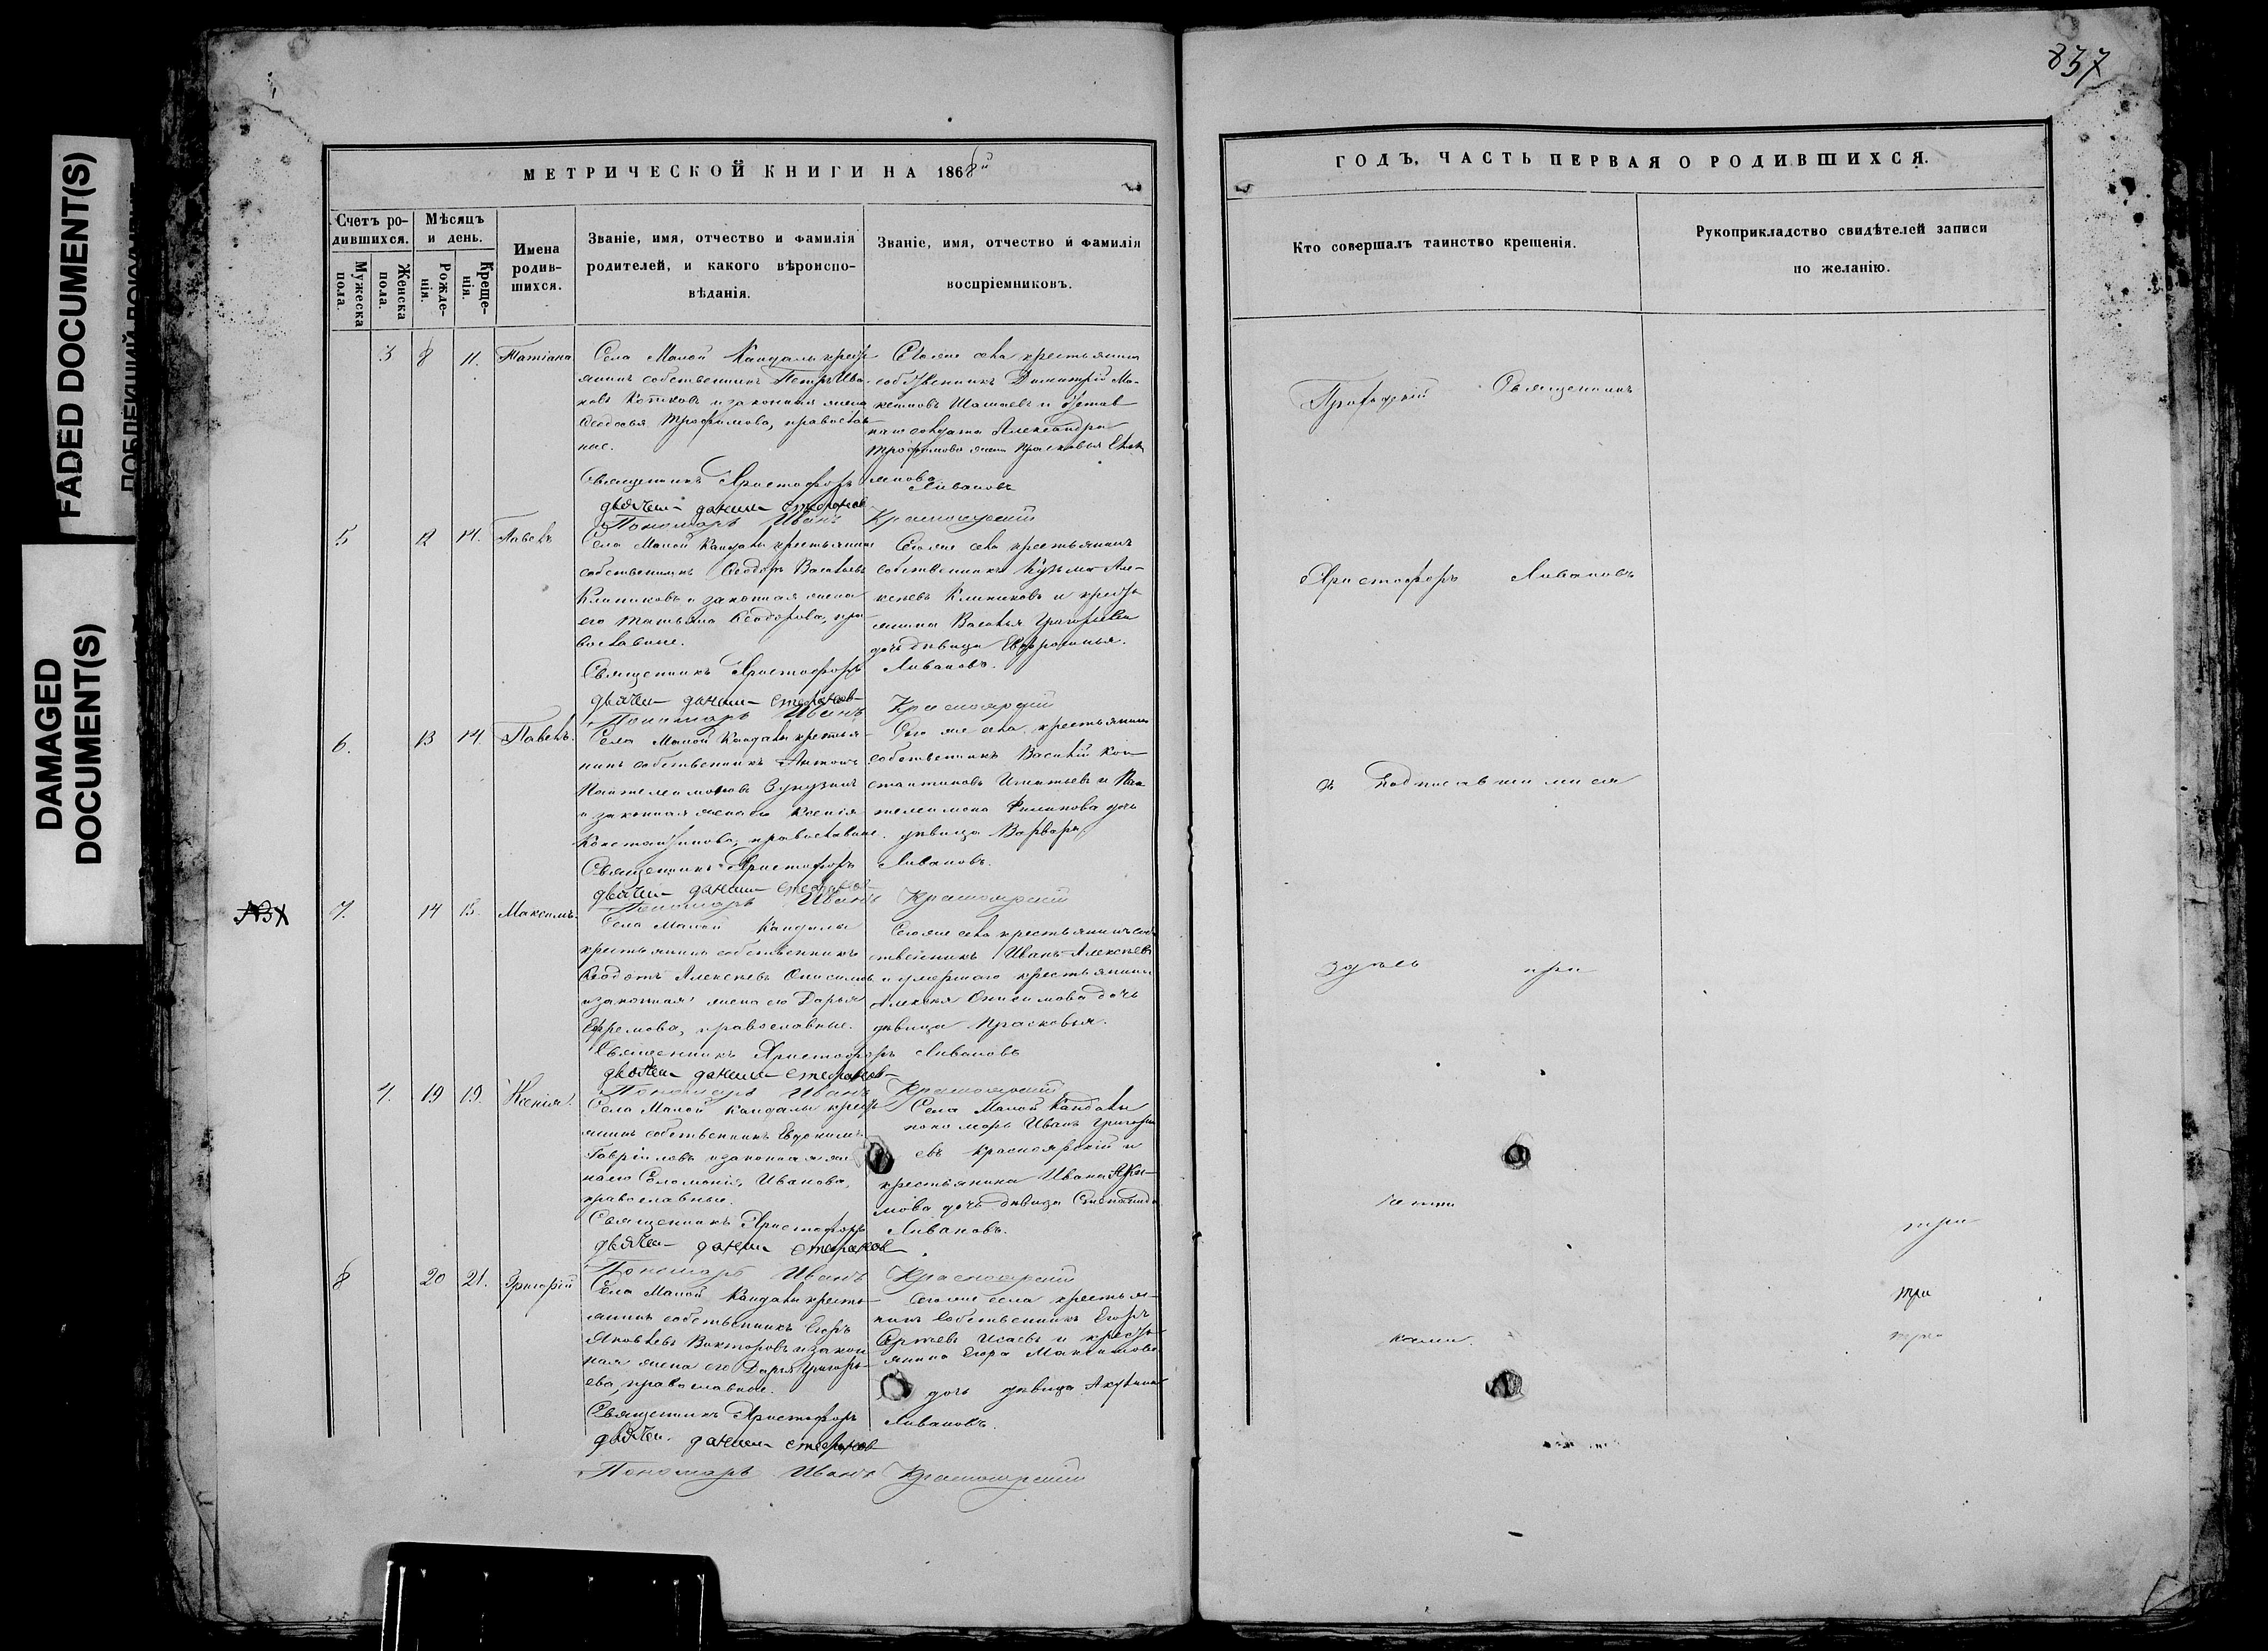 FADED DOCUMENT(S)
DAMAGED
DOCUMENT(S)
837
МЕТРИЧЕСКОЙ КНИГИ НА 1868й
ГОДЪ, ЧАСТЬ ПЕРВАЯ О РОДИВШИХСЯ.
Счетъ ро-
дившихся.
Мужеска
пола.
Женска
пола.
Мѣсяцъ
и день.
Рожде-
нія.
Креще-
нія.
Имена
родив-
шихся.
Званіе, имя, отчество и фамилія
родителей, и какого вѣроиспо-
вѣданія.
Званіе, имя, отчество и фамилія
воспріемниковъ.
Кто совершалъ таинство крещенія.
Рукоприкладство свидѣтелей записи
по желанію.
3 8 11. Татіана
Села Малой Кандалы крестъ
янинъ собственникъ Петръ Ива-
новъ и законная жена
Ѳеодосья Трофимова, православ
ные.
Тогоже села крестьянинъ
собственникъ Димитрій
Шамаевъ и
солдата Александра
Трофимова жена Прасковья
Священникъ Христофоръ Ливановъ
дьячекъ Данiилъ Стефановъ
Пономарь Иванъ Красноярскій
5 12 14. Павелъ
Села Малой Кандалы крестьянинъ
собственникъ Ѳеодоръ Васильевъ
Клиниковъ и законная жена
его Татьяна Ѳеодорова, пра
вославные.
Тогоже села крестьянинъ
собственникъ Кузьма Але-
ксѣевъ Клиниковъ и крестъ
янина Василья Григорьева
дочь дѣвица Евфросинья.
Священникъ Христофоръ Ливановъ.
дьячекъ Данiилъ Стефановъ
Пономарь Иванъ Красноярскій
6. 13 14. Павелъ.
Села Малой Кандалы крестья-
нинъ собственникъ Антонъ
Пантелеимоновъ
и законная жена его Ксенія
Константинова, православные.
Того же села крестьянинъ
собственникъ Василій Кон-
стантиновъ Игнатьевъ и Пан
телеимона Филипова дочь
дѣвица Варвара
Священникъ Христофоръ Ливановъ.
дьячекъ Данiилъ Стефановъ
Пономарь Иванъ Красноярскій
7. 14 15. Максимъ.
Села Малой Кандалы
крестьянинъ собственникъ
Ѳеодотъ Алексѣевъ Онисимовъ
и законная жена его Дарья
Ефремова, православные.
Тогоже села крестьянинъ соб
ственникъ Иванъ Алексѣевъ
и умершаго крестьянина
Алексѣя Онисимова дочь
дѣвица Прасковья.
Священникъ Христофоръ Ливановъ
дьячекъ Данiилъ Стефановъ
Пономарь Иванъ Красноярскій
4. 19 19. Ксенія.
Села Малой Кандалы крестъ
янинъ собственникъ Евдокимъ
Гавріиловъ и законная же
на его Соломонія Иванова,
православные.
Села Малой Кандалы
пономарь Иванъ Григорь
евъ Красноярскій и
крестьянина Ивана Аки-
мова дочь дѣвица Степанида
Священникъ Христофоръ Ливановъ.
дьячекъ Данiилъ Стефановъ
Пономарь Иванъ Красноярскій
8 20 21. Григорій
Села Малой Кандалы кресть-
янинъ собственникъ Егоръ
Яковлевъ Викторовъ и закон
ная жена его Дарья Григорь-
ева, православные.
Тогоже села крестья-
нинъ собственникъ Егоръ
Сергѣевъ Исаевъ и крестъ-
янина Егора Максимова
дочь дѣвица Акулина
Священникъ Христофоръ Ливановъ.
дьячекъ Данiилъ Стефановъ
Пономарь Иванъ Красноярскій
Священникъ
Христофоръ Ливановъ
съ подписавшимися
здѣсь при
четни
ками.
три
три
три